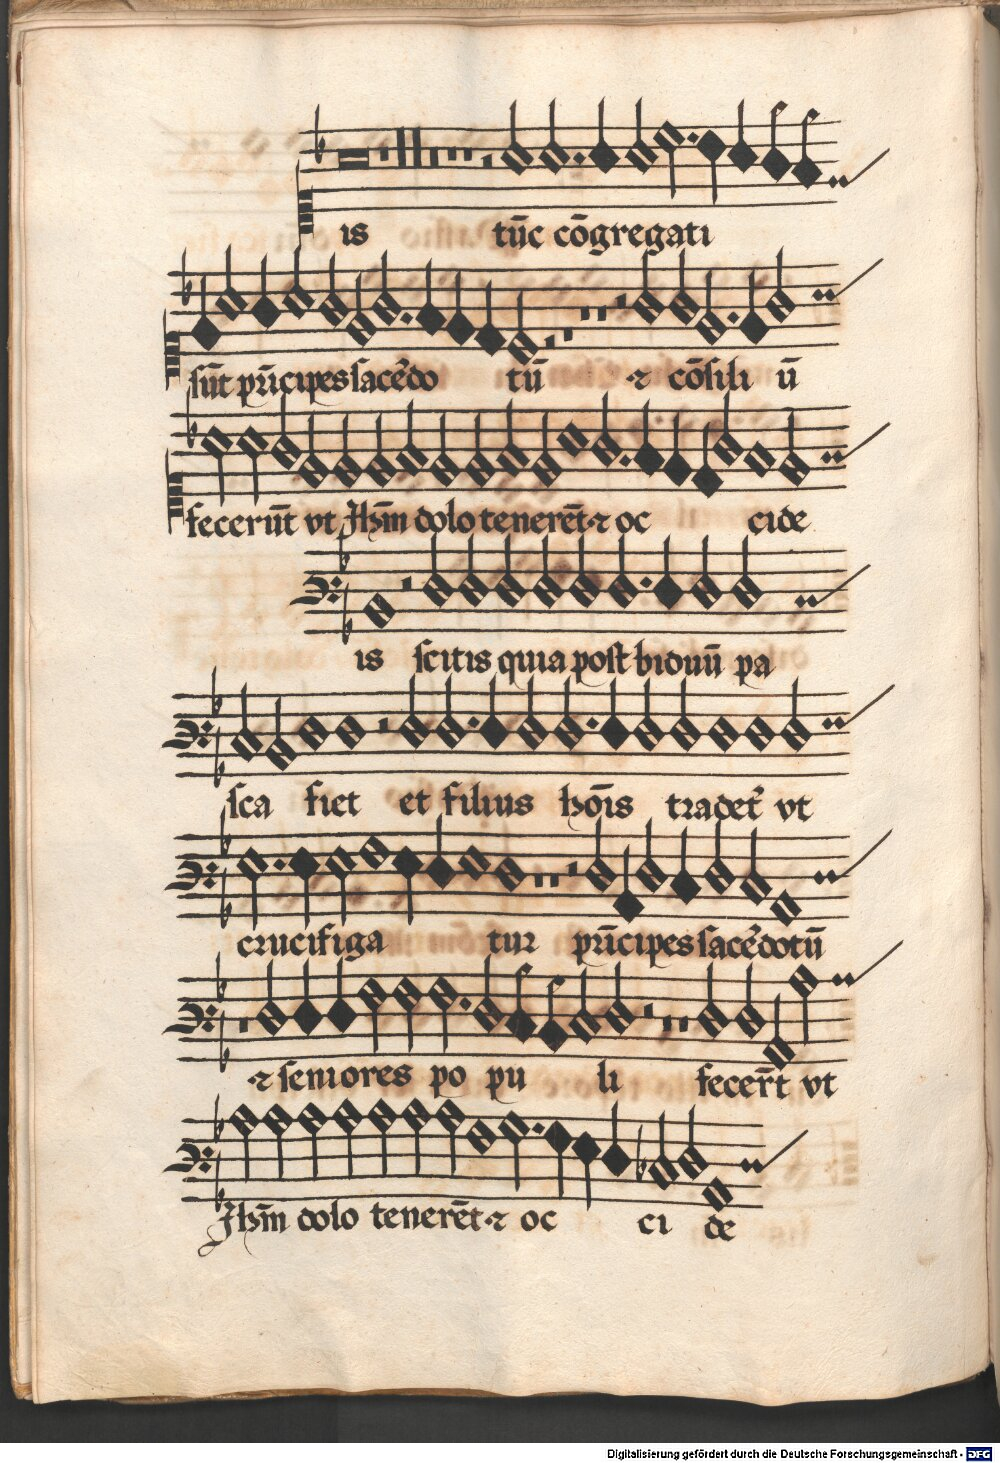 is tūc cōgregati
ſūt prīcipes ſacẽdo tū ⁊ cōſili ū
fecerūt vt Jhm̄ dolo tenerēt ⁊ oc cide
is ſcitis quia poſt biduū pa
ſca fiet et filius hōis tradet᷑ vt
crucifiga tur prīcipes ſacẽdotū
⁊ ſeniores po pu li fecer̄t vt
Jhm̄ dolo tenerēt ⁊ oc ci de
Digitalisierung gefördert durch die Deutsche Forschungsgemeinschaft - DFG